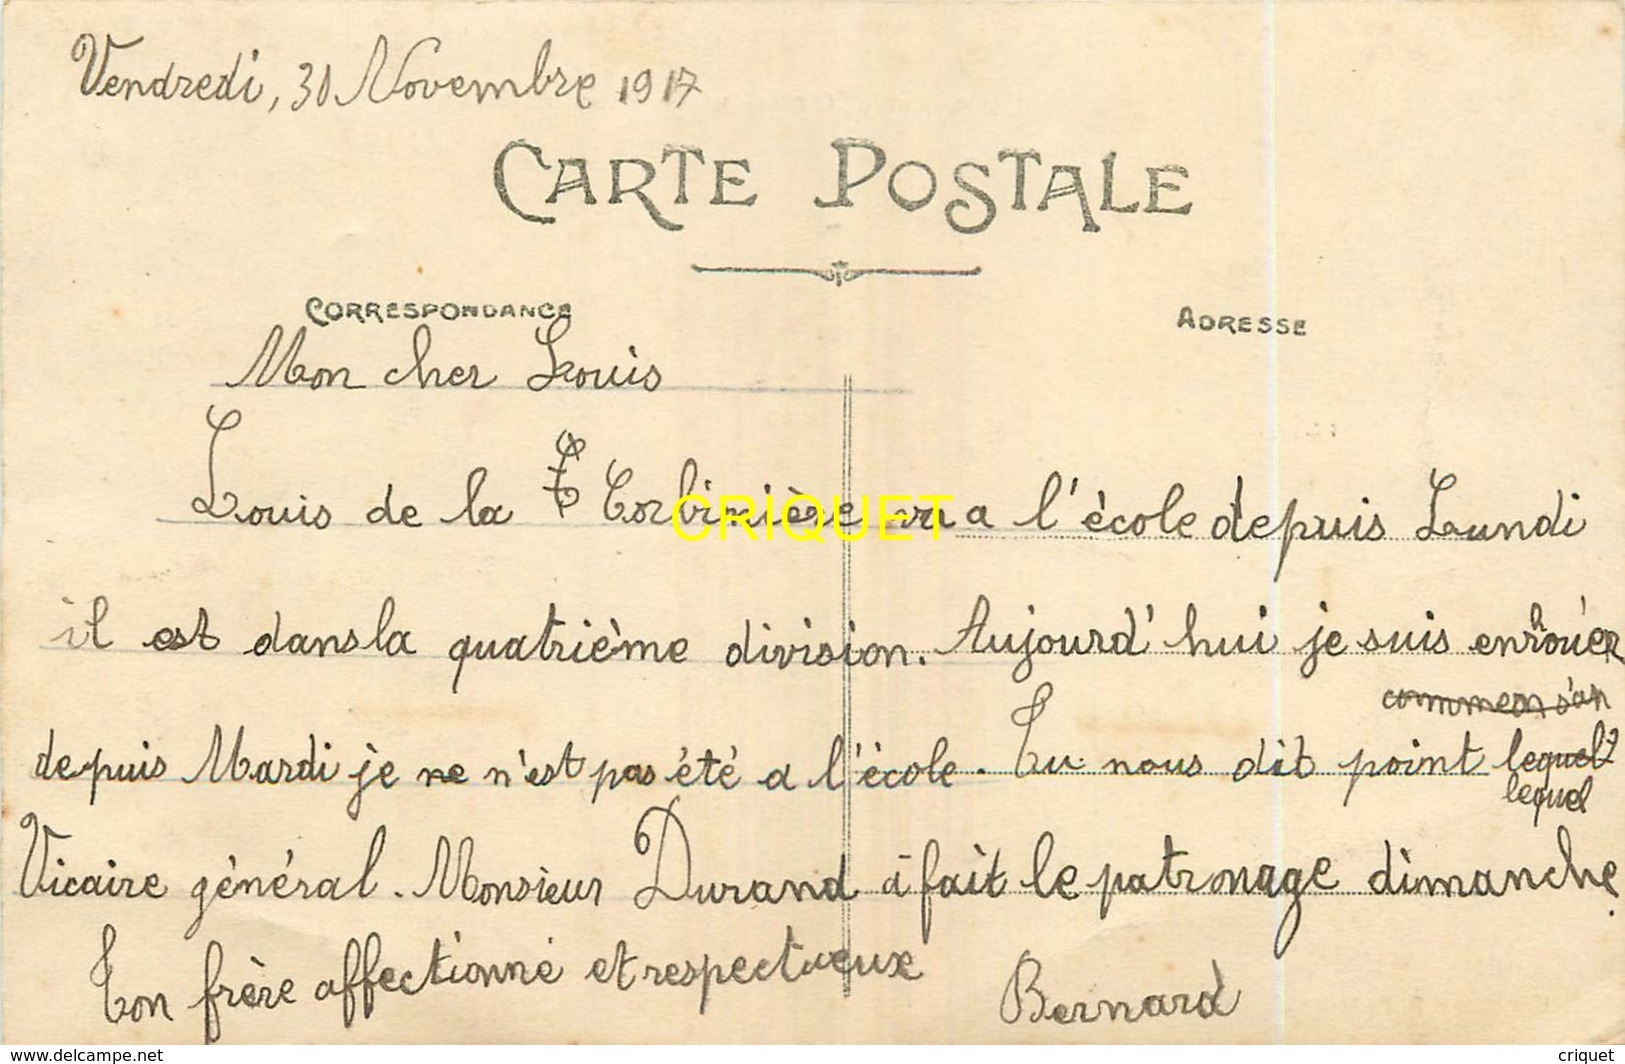 Vendredi, 30 Novembre 1917
CARTE POSTALE
CORRESPONDANCE
ADRESSE
Mon cher Louis
Louis de la Torbinière va a l'école depuis Lundi
il est dans la quatrième division. Aujourd'hui je suis enrouér
depuis Mardi je ne n'est pas été a l'école. Tu nous dit point lequel
lequel
Vicaire général. Monsieur Durand à fait le patronage dimanche.
Ton frère affectionné et respectueux
Bernard
CRIQUET
www.delcampe.net
criquet